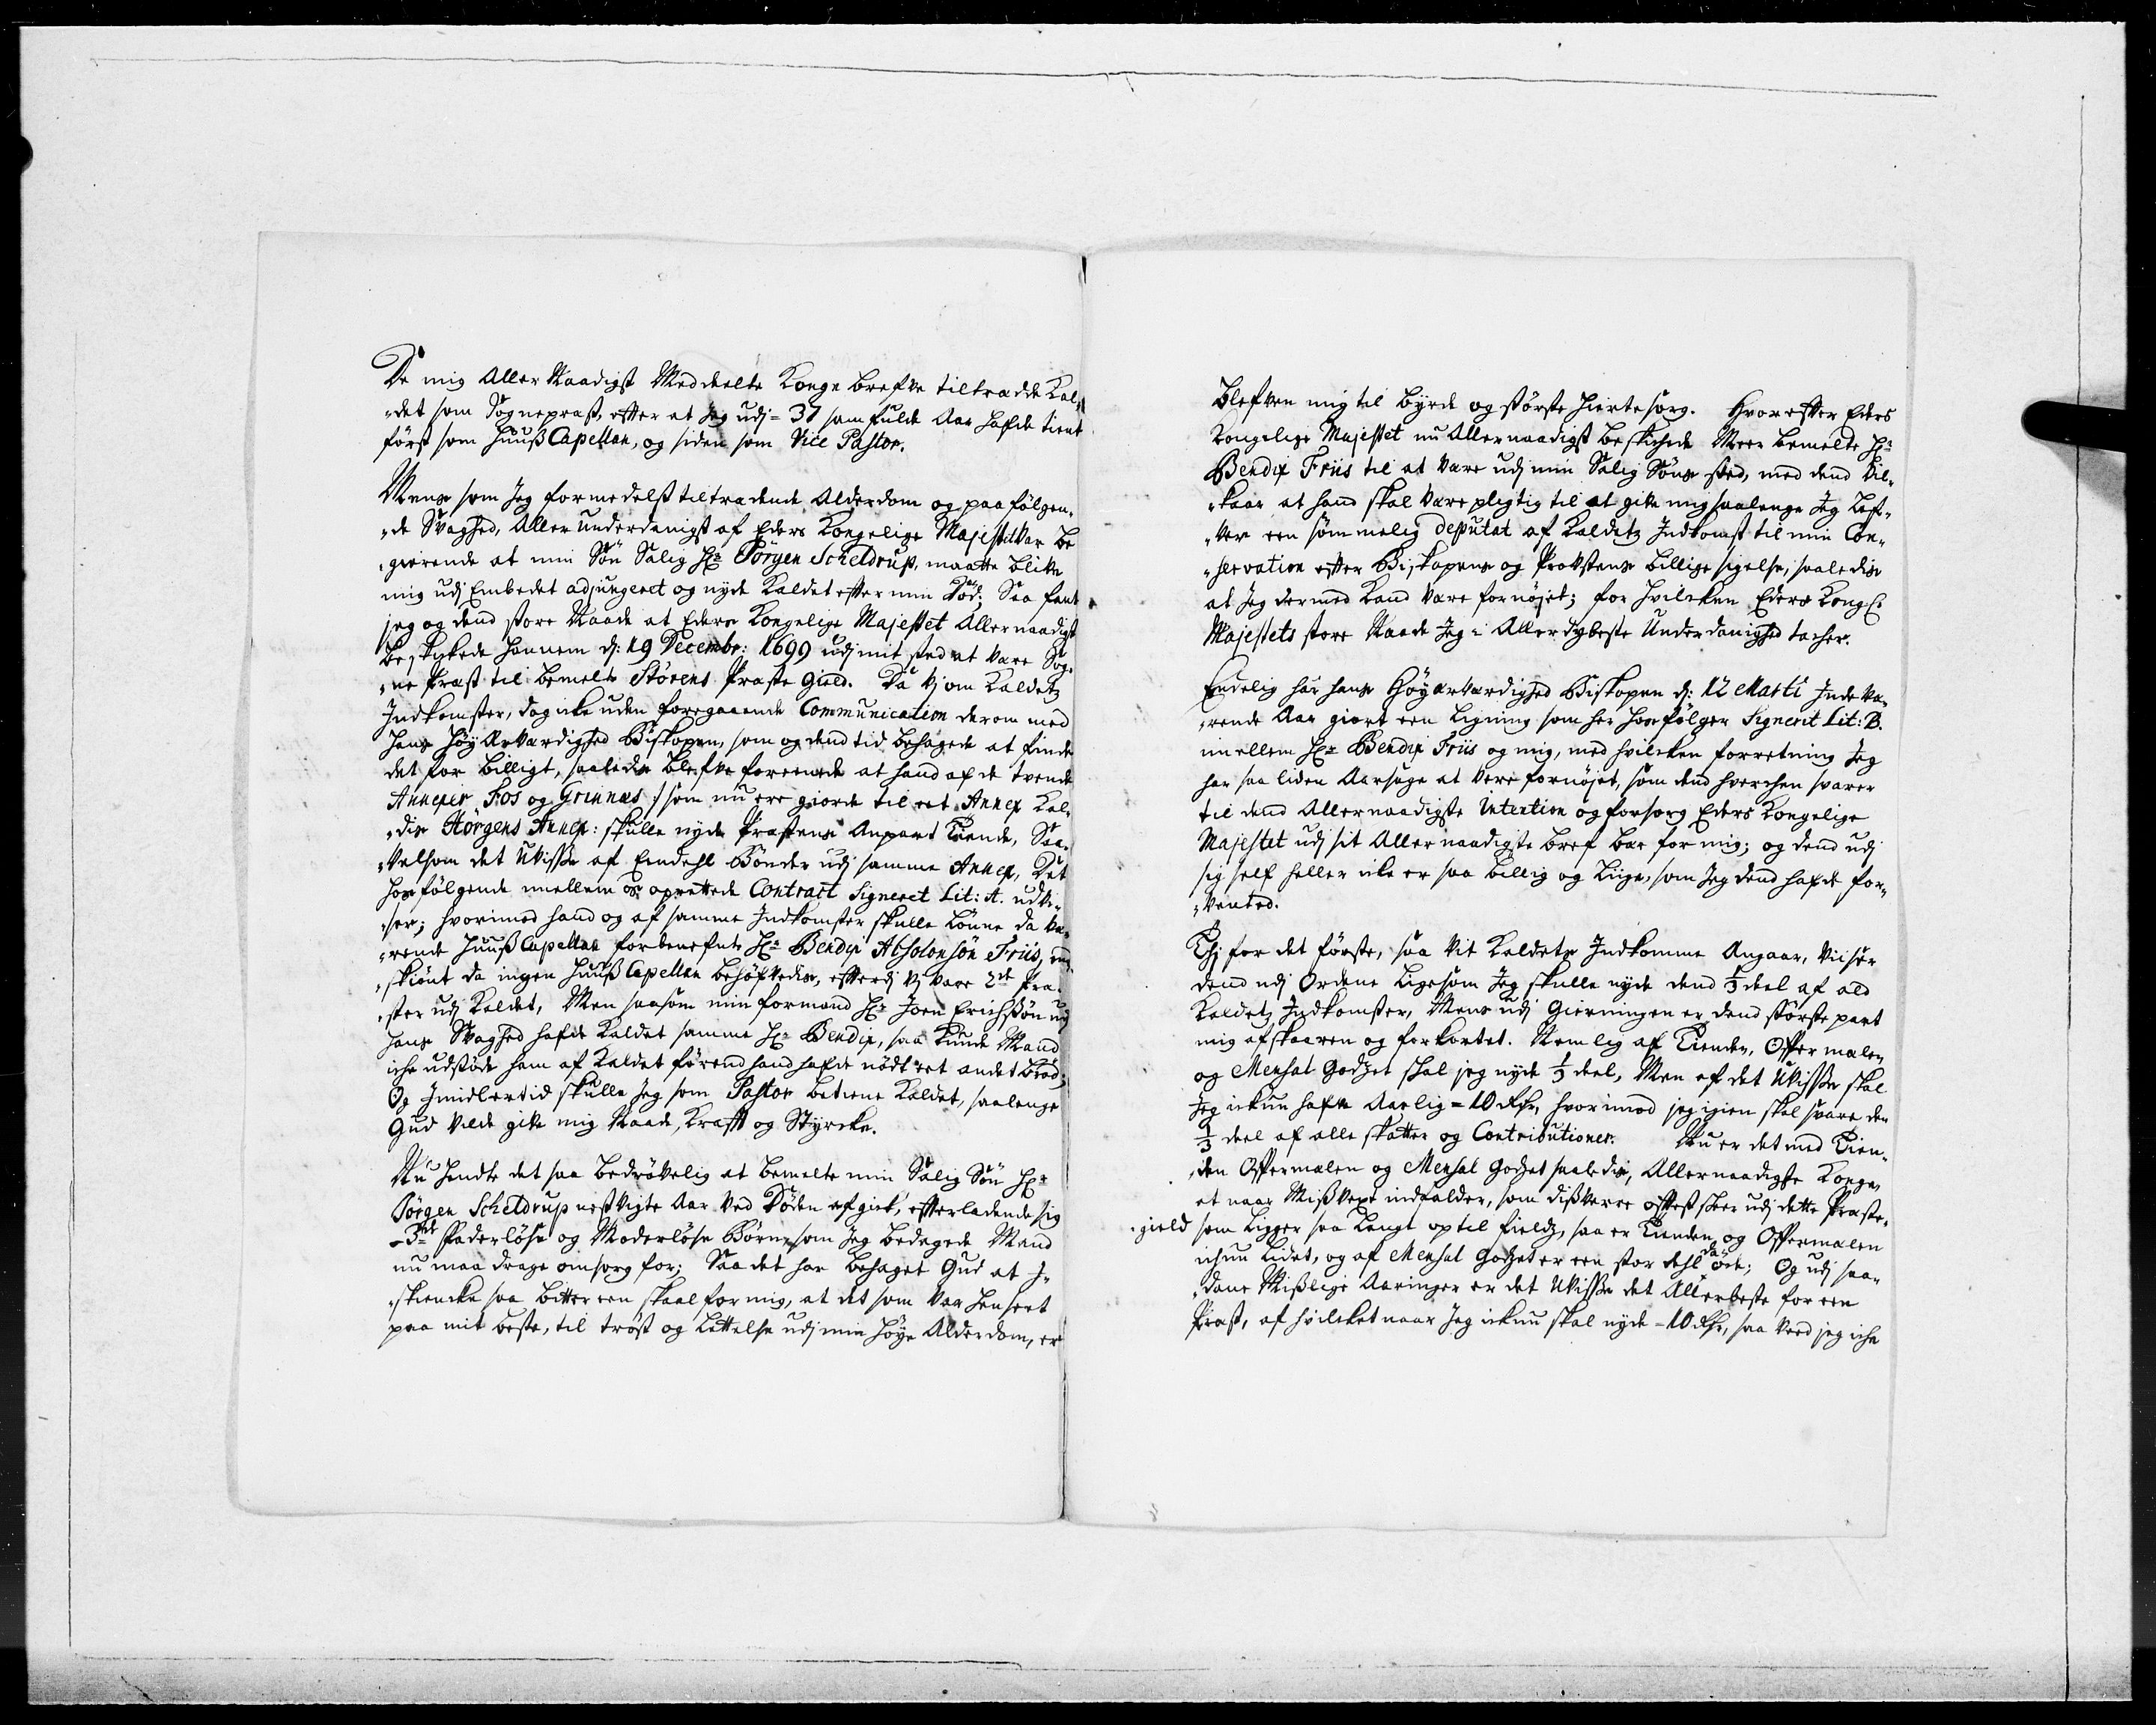 De mig Aller Naadigst Meddeelte Konge brefve tiltrædde Kal„
„det som Sognepræst, efter at Jeg udj = 37 samfulde Aar hafde tient
først som Huuß Capellan, og siden som Vice Pastor.
Mens som Jeg formedelst tiltrædende Alderdom og paafølgen„
„de Svaghed, Aller underdanigst af Eders Kongelige Majestet var be
„gierende at min Søn Salig Hr Jørgen Scheldrup, maatte blifve
mig udj Embedet adjungeret og nyde Kaldet efter min Død; Saa fant
jeg og dend store Naade at Eders Kongelige Majestet Allernaadigst
beskikede hannem d: 19 Decembr: 1699 udj mit sted at være Sog„
„ne Præst til bemelte Störens Præste gield. Da vj om Kaldetz
Indkomster, dog icke uden foregaaende Communication derom med
hans Høy Ærværdighed Biskopen, som og dend tid behagede at finde
det for billigt, saaledis blefve foreenede at hand af de tvende
Annexer Fos og Grinnæs :/ som nu ere giorde til eet Annex kal„
„dis Hörgens Annex: skulle nyde Præstens Anpart Tiende, Saa„
„velsom det Uvisse af Eendehl Bønder udj samme Annex, Det
hosfølgende imellem os oprettede Contract Signeret Lit: A. udvi„
„ser; hvorimod hand og af samme Indkomster skulle lønne da væ„
„rende Huuß Capellan forbenefnte Hr Bendix Absolonsön Friis, end
„skiønt da ingen Huuß Capellan behøfvedis, efterdj vj vare 2de Præ„
„ster udj Kaldet, Men saasom min formand Hr Joen Erichsøn udj
hans Svaghed hafde kaldet samme Hr Bendix, saa kunde Mand
icke udstøde ham af Kaldet førend hand hafde nødt eet andet brød;
Og Imidlertid skulle Jeg som Pastor betiene Kaldet, saalenge
Gud vilde gifve mig Naade, Krafft og Styrcke.
Nu hendte det saa bedrøvelig at bemelte min Salig Søn Hr
Jørgen Scheldrup nest vigte Aar ved Døden afgick, efterladende sig
= 3de Faderløse og Moderløse Børn, som Jeg bedagede Mand
nu maa drage omsorg for; Saa det har behaget Gud at I„
„skiencke saa bitter een skaal for mig, at det som var henseet
paa mit beste, til trøst og Lettelse udj min høye Alderdom, er
blefven mig til byrde og største hiertesorg. Hvorefter Eders
Kongelige Majestet nu Allernaadigst beskichede Meer bemelte Hr
Bendix Friis til at være udj min Salig Søns sted, med dend vil„
„kaar at hand skal være pligtig til at gifve mig saalenge Jeg Lef„
„ver een sømmelig deputat af Kaldetz Indkomst til min Con„
„servation efter Biskopens og Provstens billige sigelse, saaledis
at Jeg dermed kand være fornøjet; for hvilcken Eders Kongl:
Majestets store Naade Jeg i Allerdybeste Underdanighed tacher.
Endelig har hans Høyærværdighed Biskopen d: 12 Marti Inde væ„
„rende Aar giort een Ligning som her hosfølger Signerit Lit: B.
imellem Hr Bendix Friis og mig, med hvilcken forretning Jeg
har saa liden Aarsage at være fornøjet, som dend hverchen svarer
til dend Allernaadigste Intention og forsorg Eders Kongelige
Majestet udj sit Allernaadigste bref bær for mig; og dend udj
sig self heller icke er saa billig og Liige, som Jeg dend hafde for„
„vented.
Thj for det første, saa vit Kaldets Indkomme Angaar, viiser
dend udj Ordene Ligesom Jeg skulle nyde dend 1/3 deel af ald
Kaldetz Indkomster, Mens udj Gierningen er dend største part
mig afskaaren og forkortet. Nemlig af Tienden, Offer mælen
og Mensal Godzet skal jeg nyde 1/3 deel, Men af det Uvisse skal
Jeg ickun hafve Aarlig = 10 Rdr, hvorimod jeg igien skal svare den
1/3 deel af alle skatter og Contributioner. Nu er det med Tien„
„den Offermælen og Mensal Godzet saaledis, Allernaadigste Konge,
at naar Mißvext indfalder, som dißverre offtest skeer udj dette Præste„
„gield som Ligger saa Langt op til fieldz, saa er Tienden og Offermælen
ichun Lidet, og af Mensal Godzet er een stor dehl da øde; Og udj saa„
„dane Mißlige Aaringer er det Uvisse det Allerbeste for een
Præst, af hvilcket naar Jeg ickun skal nyde = 10 Rdr, saa veed jeg iche